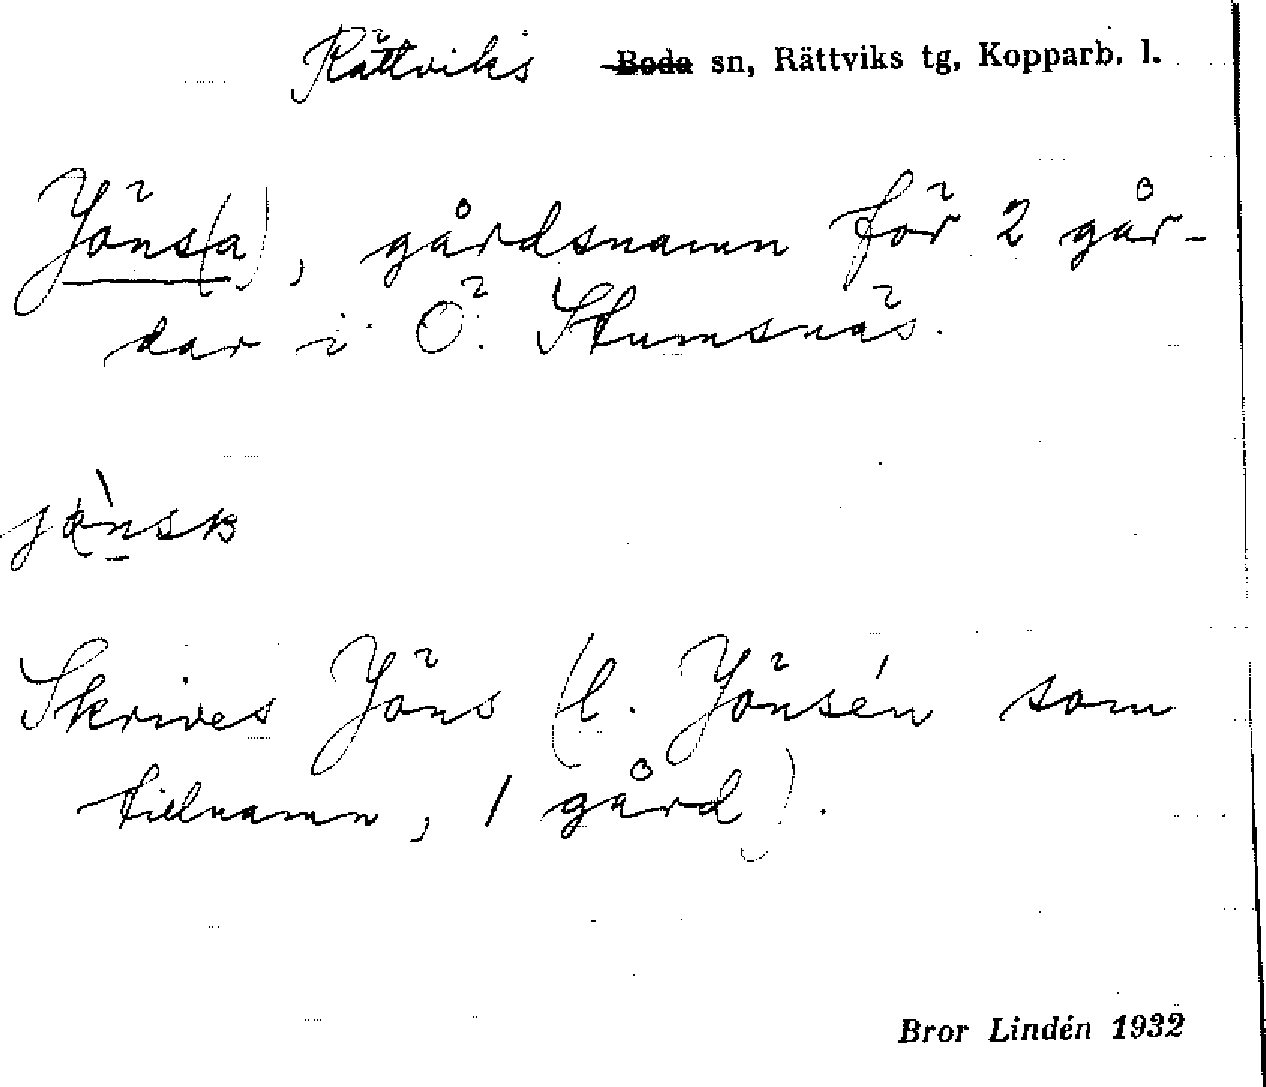 Rättviks Boda sn, Rättviks tg, Kopparb. l.
Jöns(a), gårdsnamn för 2 går-
dar i Ö. Stumsnäs.
Skrives Jöns (l. Jönsén som
tillnamn, 1 gård).
Bror Lindén 1932